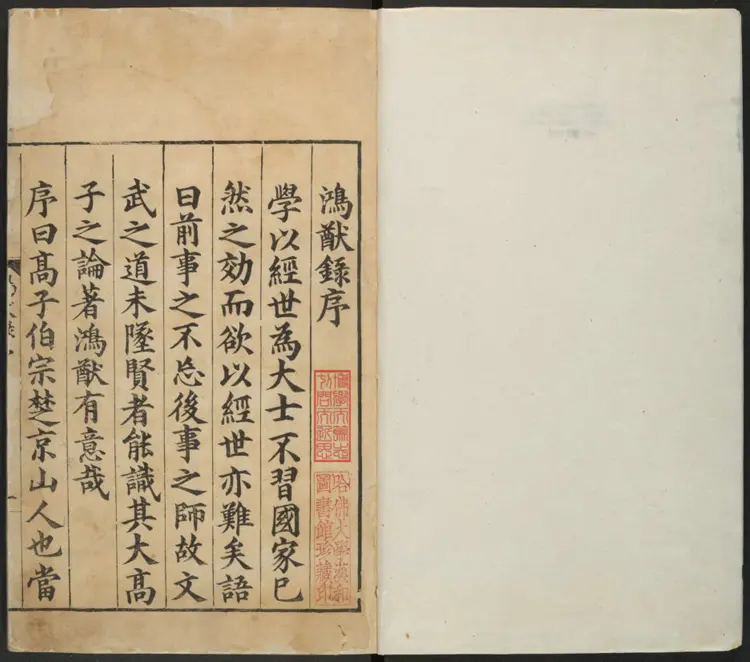 鴻猷錄序
學以經世為大士不習國家已
然之効而欲以經世亦難矣語
曰前事之不忘後事之師故文
武之道未墜賢者能識其大髙
子之論著鴻猷有意哉
序曰髙子伯宗楚京山人也當
博學而篤志
切問而近思
哈佛大學漢和
圖書館珍藏印